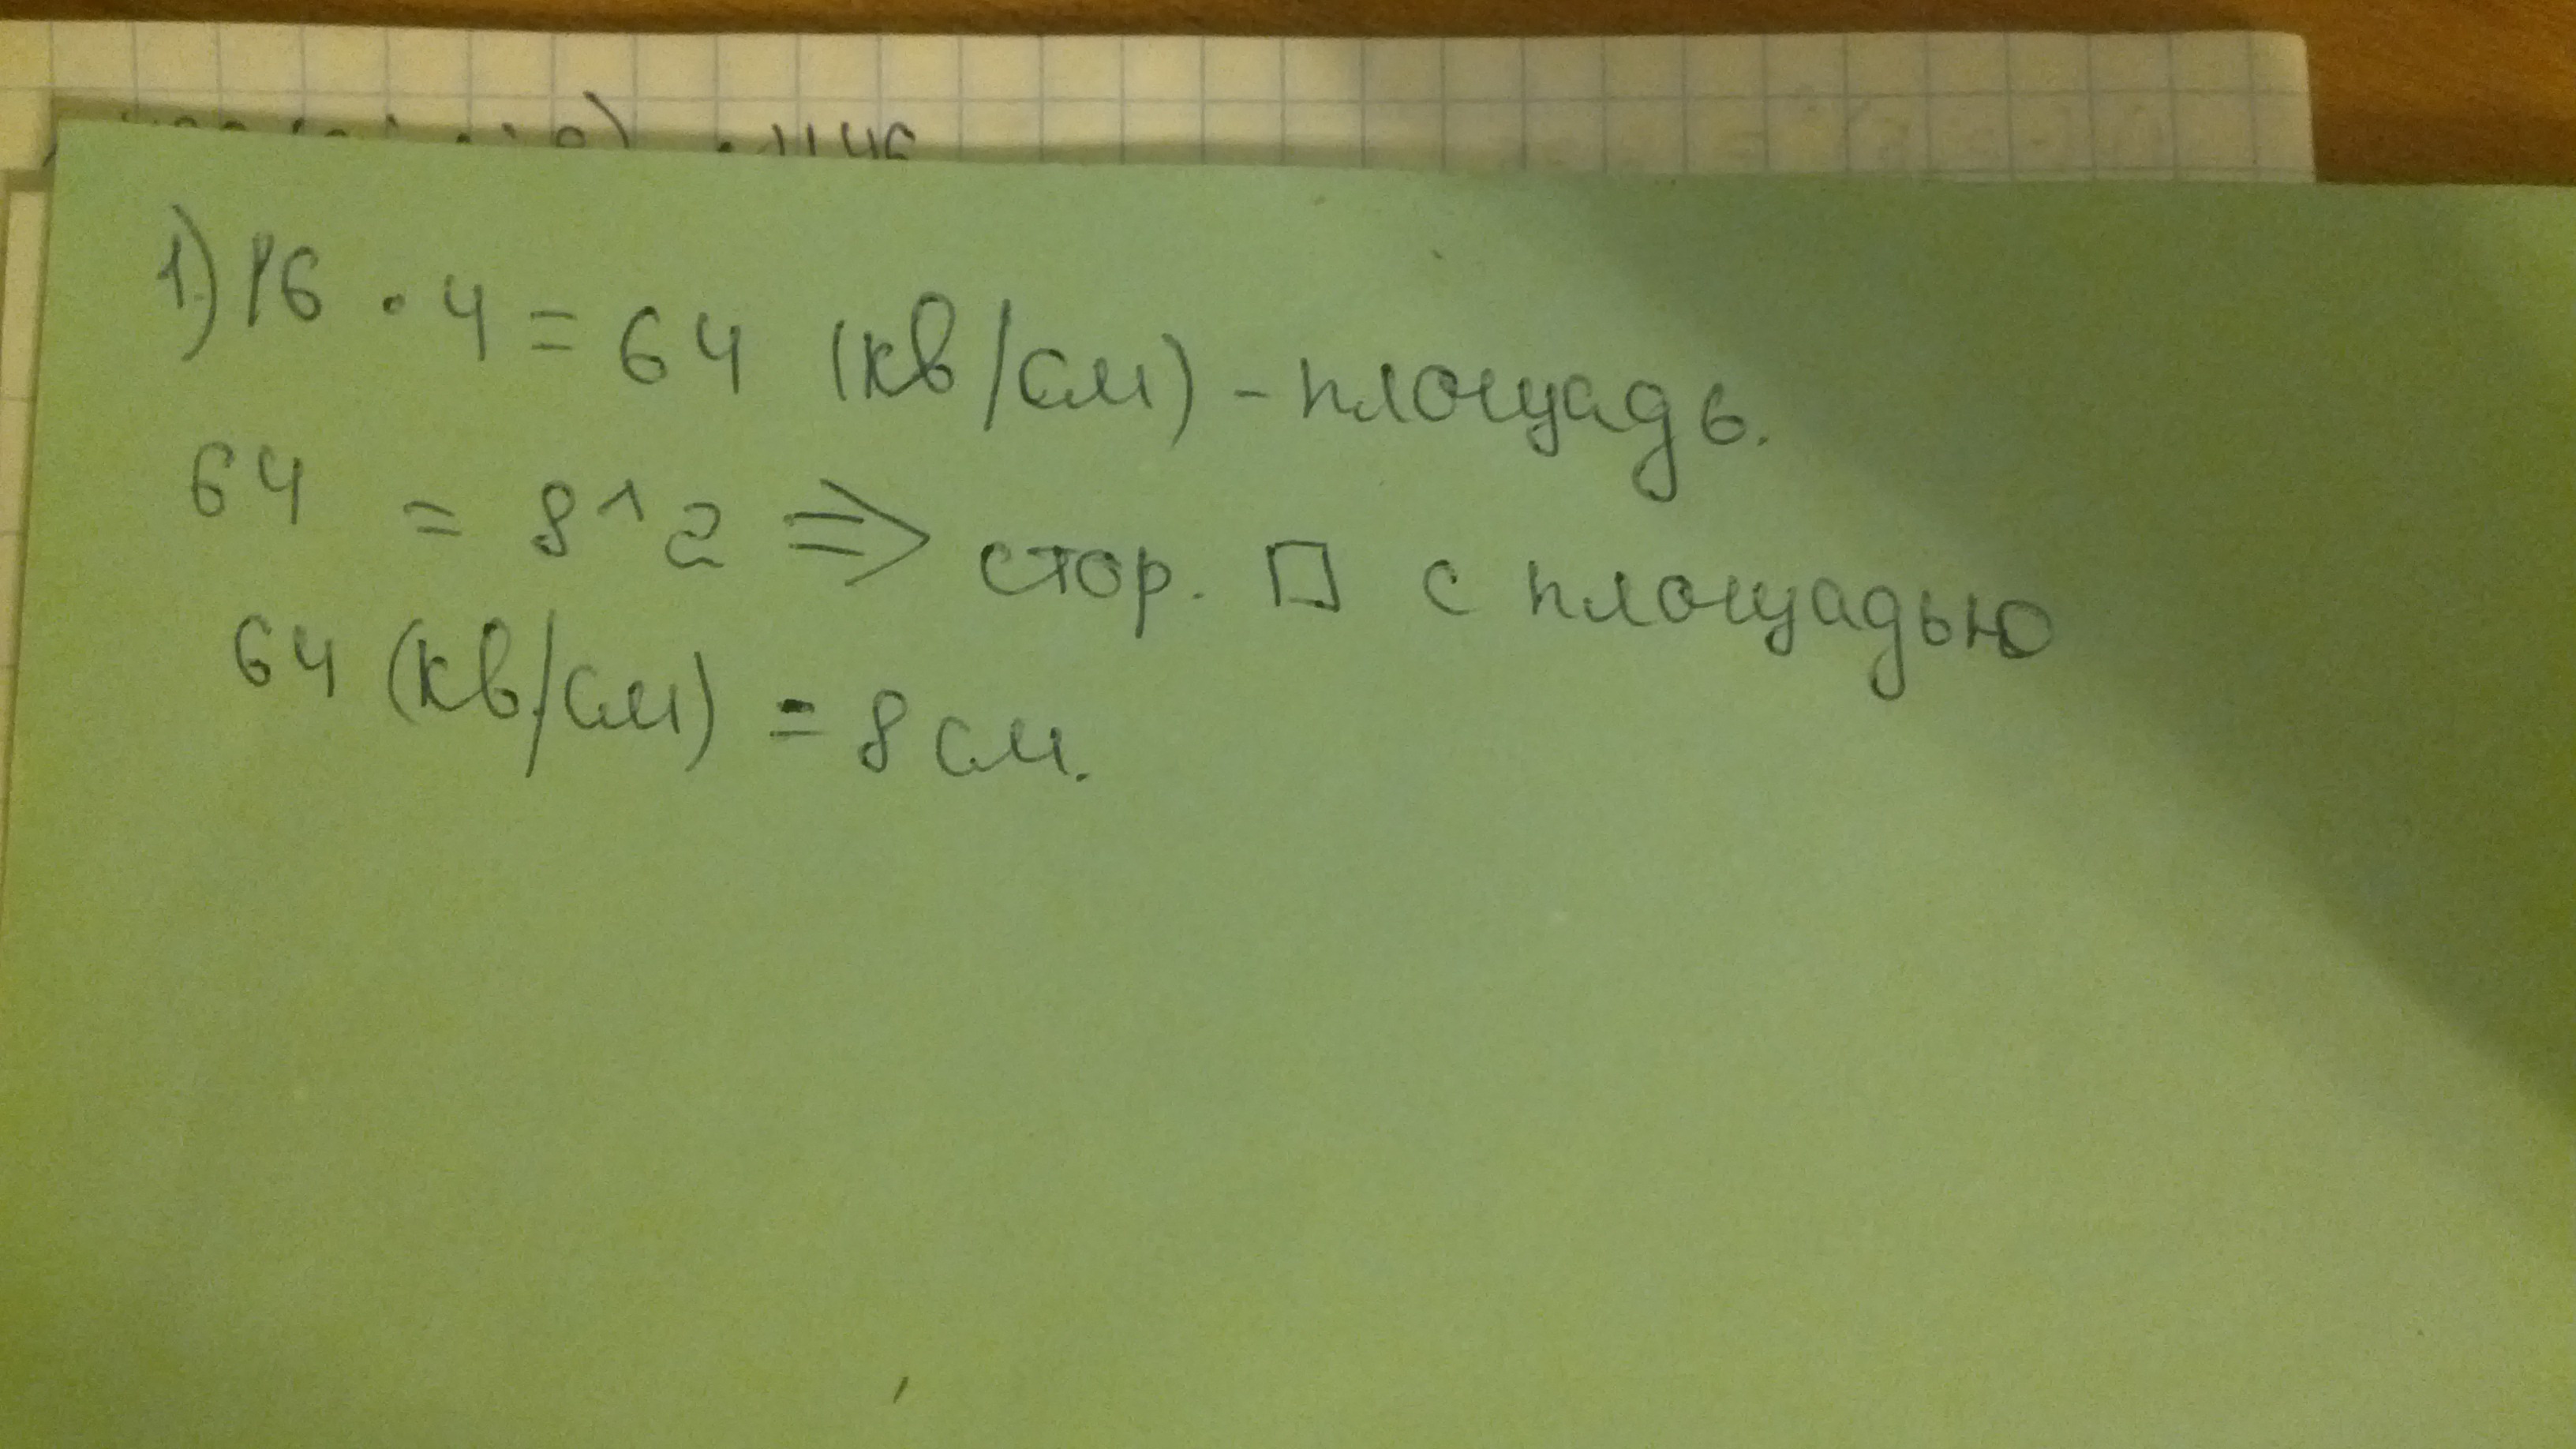 1) 16 · 4 = 64 (кв/см) - площадь.
64 = 8^2 ⇒ стор. □ с площадью
64 (кв/см) = 8 см.